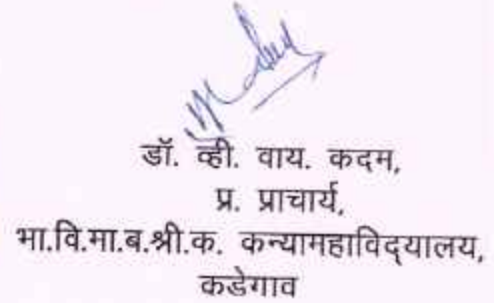 डॉ. व्ही. वाय. कदम,
प्र. प्राचार्य,
भा.वि.मा.ब.श्री.क. कन्यामहाविद्यालय,
कडेगाव